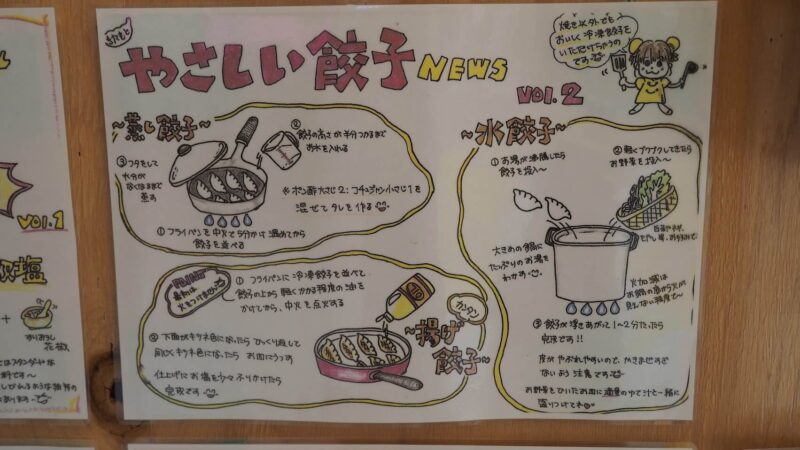 やさしい餃子NEWS
VOl.2
焼き以外でも
おいしく冷凍餃子を
いただけちゃうの
です
~蒸し餃子~
②餃子の高さが半分つかるまで
お水を入れる
③フタをして
水分が
なくなるまで
蒸す
※ポン酢大さじ2:コチュジャン小さじ1を
混ぜてタレを作る
①フライパンを中火で5分かけ温めてから
餃子を並べる
POINT
最初は
火をつけません
①フライパンに冷凍餃子を並べて
餃子の上から軽くかかる程度の油を
かけてから、中火を点火する
カンタン
~揚げ
餃子~
②下面がキツネ色になったらひっくり返して
両面キツネ色になったらお皿にうつす
仕上げにお塩を少々ふりかけたら
完成です
~水餃子~
①お湯が沸騰したら
餃子を投入~
②軽くブクブクしてきたら
お野菜を投入~
大きめの鍋に
たっぷりのお湯を
わかす
火加減は
お鍋の底から火が
見えない程度で~
③餃子が浮きあがって1~2分たったら
完成です!!
皮がやぶれやすいので、かきまぜすぎ
ないよう注意です
お野菜をひいたお皿に適量のゆで汁と一緒に
盛りつけてネ
VOl.1
塩
+
すりおろし
花椒
はスタンダードな
料です~
しびれるような独特の
あります。